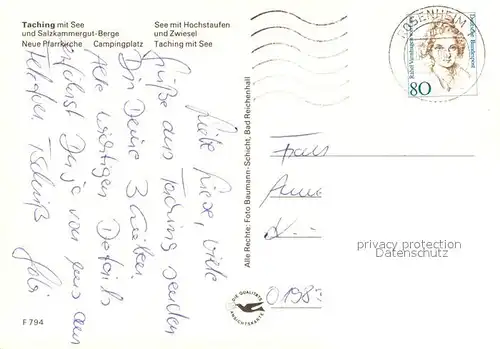 Taching mit See
und Salzkammergut-Berge
Neue Pfarrkirche Campingplatz
See mit Hochstaufen
und Zwiesel
Taching mit See
ROSENHEIM
Deutsche Bundespost
Rahel Varnhagen von
80
Alle Rechte: Foto Baumann-Schicht, Bad Reichenhall
Liebe Liese, viele
Grüße aus Taching senden
Dir Deine 3 Lieben.
Alle wichtigen Details
erfährst Du ja von uns am
Telefon. Tschüß
Frau
privacy protection
Datenschutz
DIE QUALITÄTS
ANSICHTSKARTE
F 794